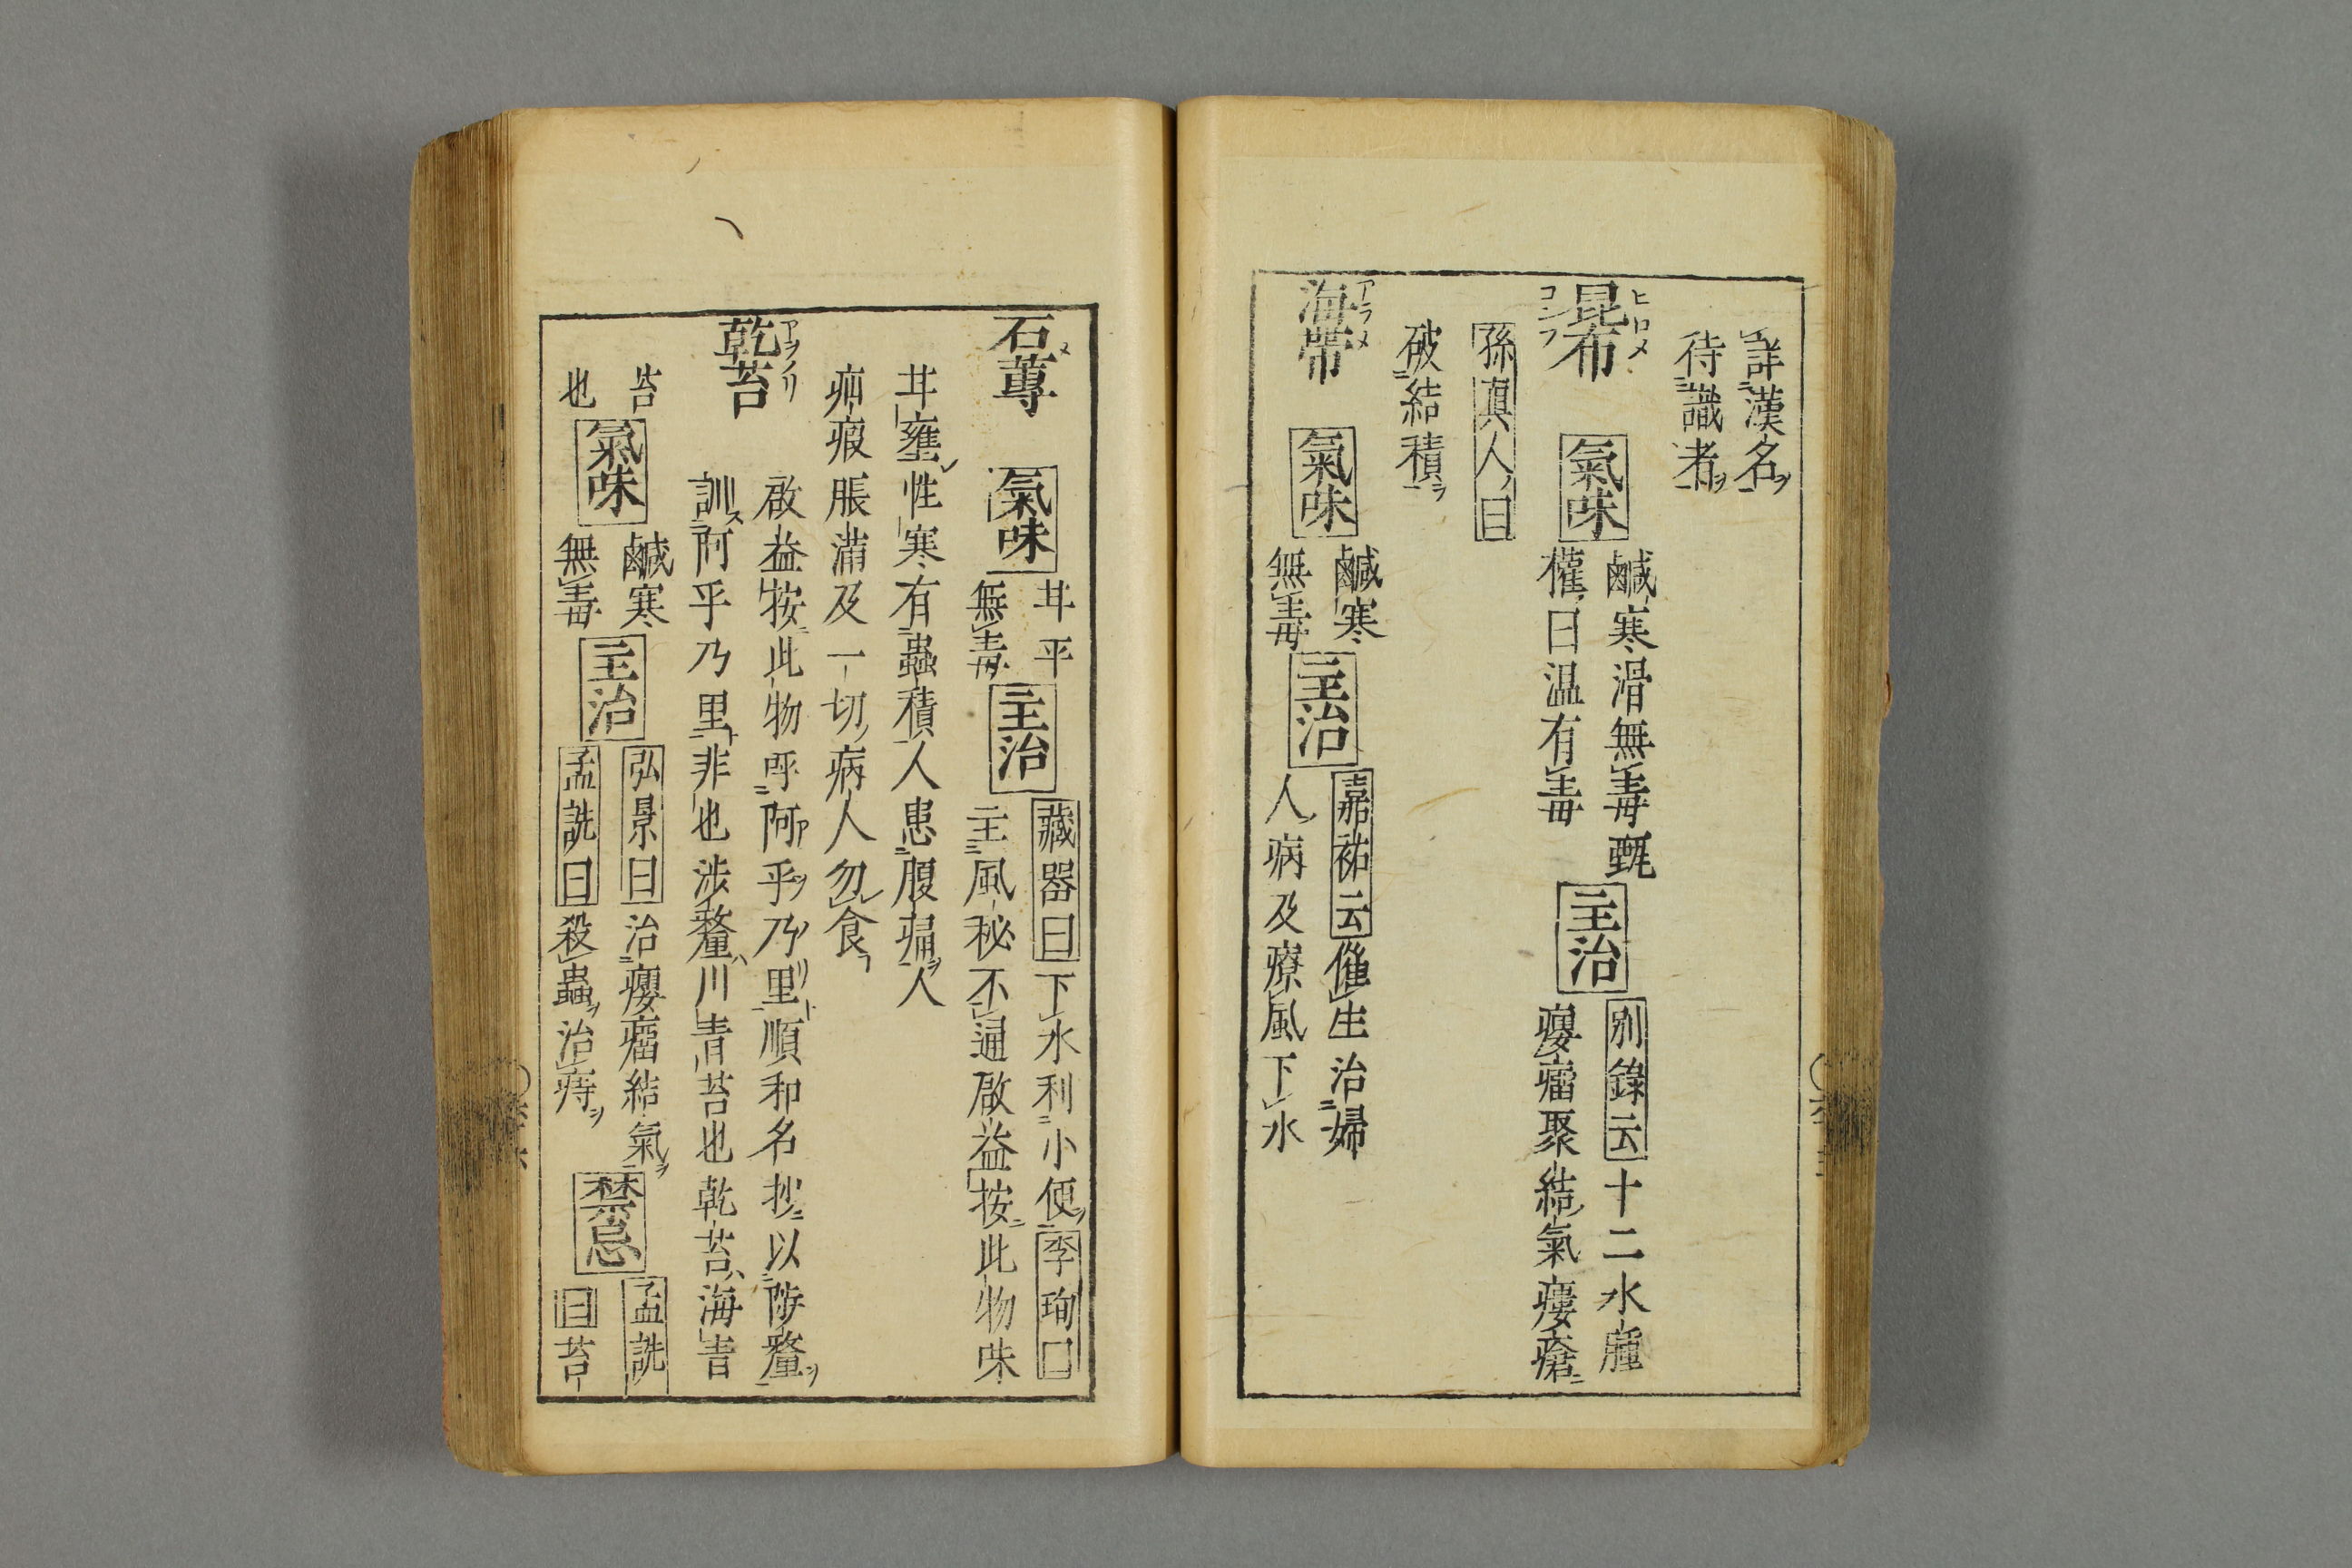 詳漢名
待識者
昆布
ヒロメ
コンフ
氣味
鹹寒滑無毒甄
權曰温有毒
主治
別錄云十二水腫
癭瘤聚結氣瘻瘡
孫真人曰
破結積
海帶
アラメ
氣味
鹹寒
無毒
主治
嘉祐云催生治婦
人病及療風下水
石蓴
氣味
甘平
無毒
主治
藏器曰下水利小便李珣曰
主風秘不通啟益按此物味
甘壅性寒有蟲積人患腹痛人
疝瘕脹滿及一切病人勿食
乾苔
アヲノリ
啟益按此物呼阿乎乃里順和名抄以陟釐
訓阿乎乃里非也涉釐川青苔也乾苔海青
苔
也
氣味
鹹寒
無毒
主治
弘景曰治癭瘤結氣
孟詵曰殺蟲治痔
禁忌
孟詵
曰苔